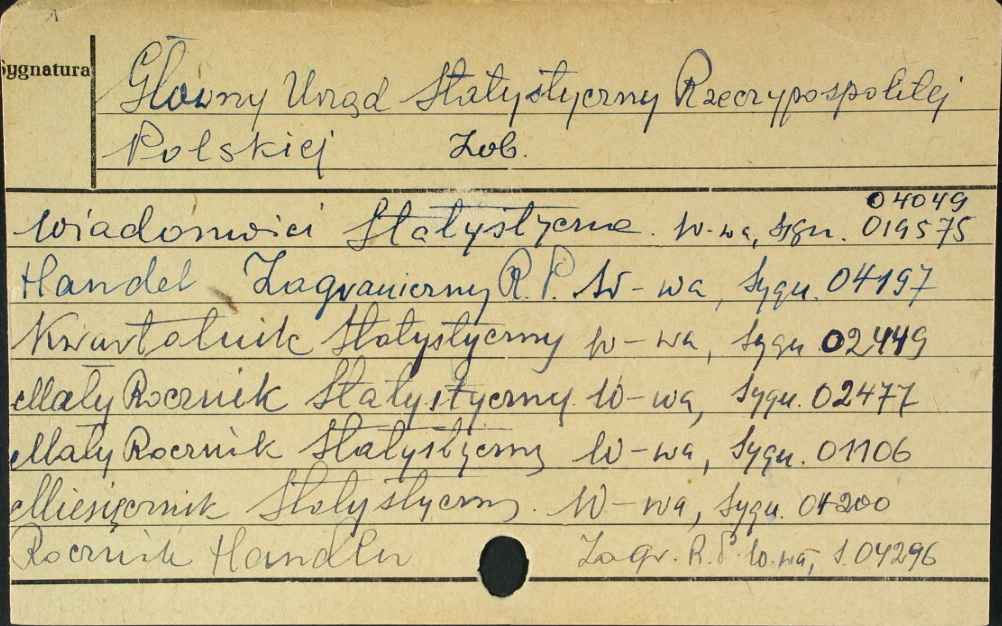 Sygnatura
Główny Urząd Statystyczny Rzeczypospolitej
Polskiej Zob.
04049
Wiadomości Statystyczne. W-wa, Sygn. 019575
Handel Zagraniczny R.P. W-wa, Sygn. 04197
Kwartalnik Statystyczny W-wa, Sygn 02449
Mały Rocznik Statystyczny. W-wa, Sygn. 02477
Mały Rocznik Statystyczny W-wa, Sygn. 01106
Miesięcznik Statystyczny. W-wa, Sygn. 04200
Rocznik Handlu Zagr. R.P. W-wa, S. 04296